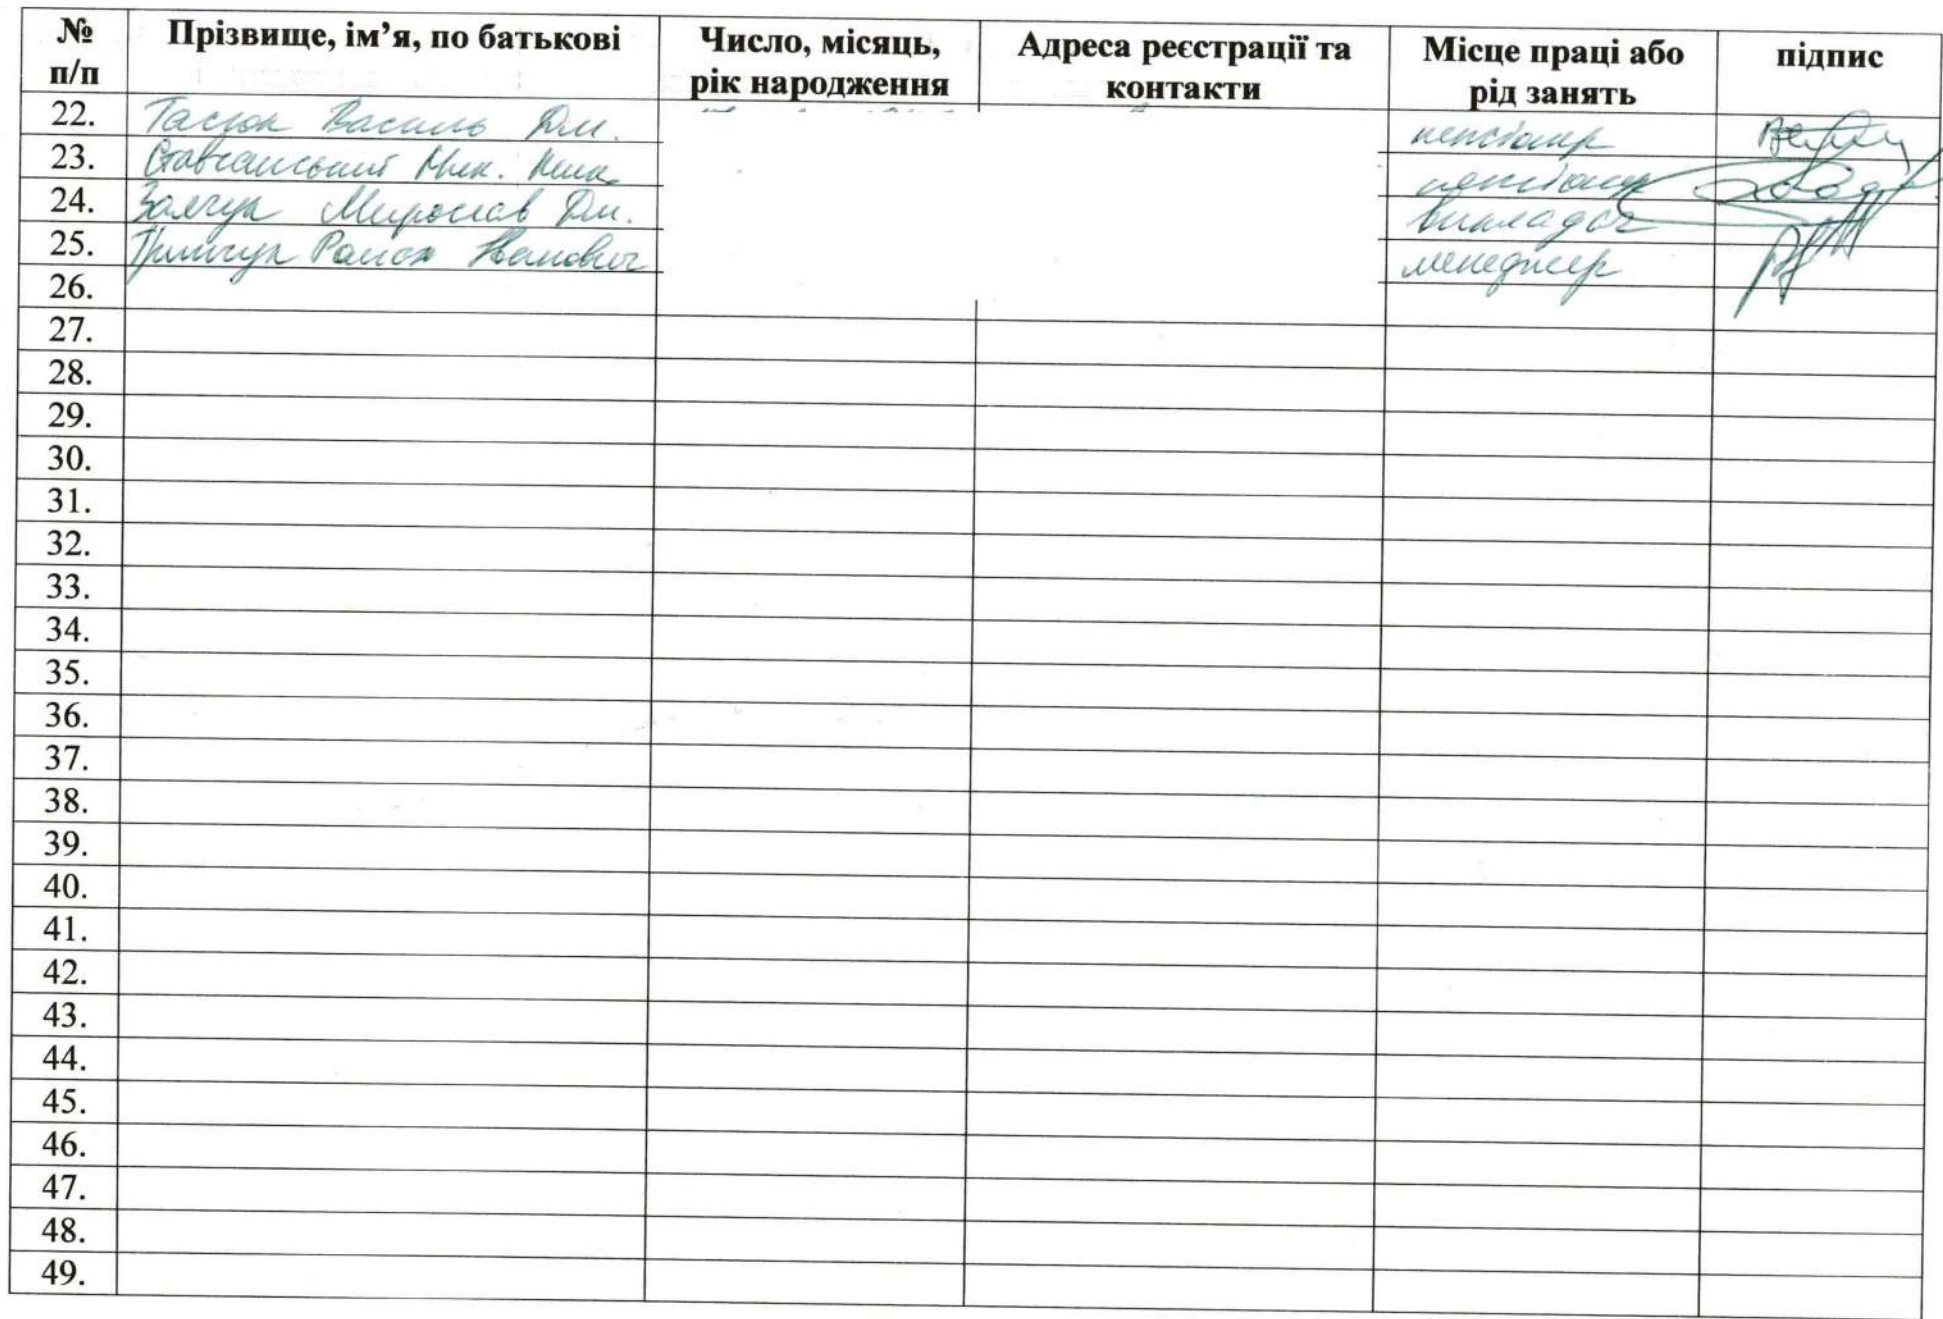 № п/п Прізвище, ім’я, по батькові Число, місяць, рік народження Адреса реєстрації та контакти Місце праці або рід занять підпис
22. Тасюк Василь Дм. пенсіонер
23. Мик. пенсіонер
24. Мирослав Дм. викладач
25. Іванович менеджер
26.
27.
28.
29.
30.
31.
32.
33.
34.
35.
36.
37.
38.
39.
40.
41.
42.
43.
44.
45.
46.
47.
48.
49.